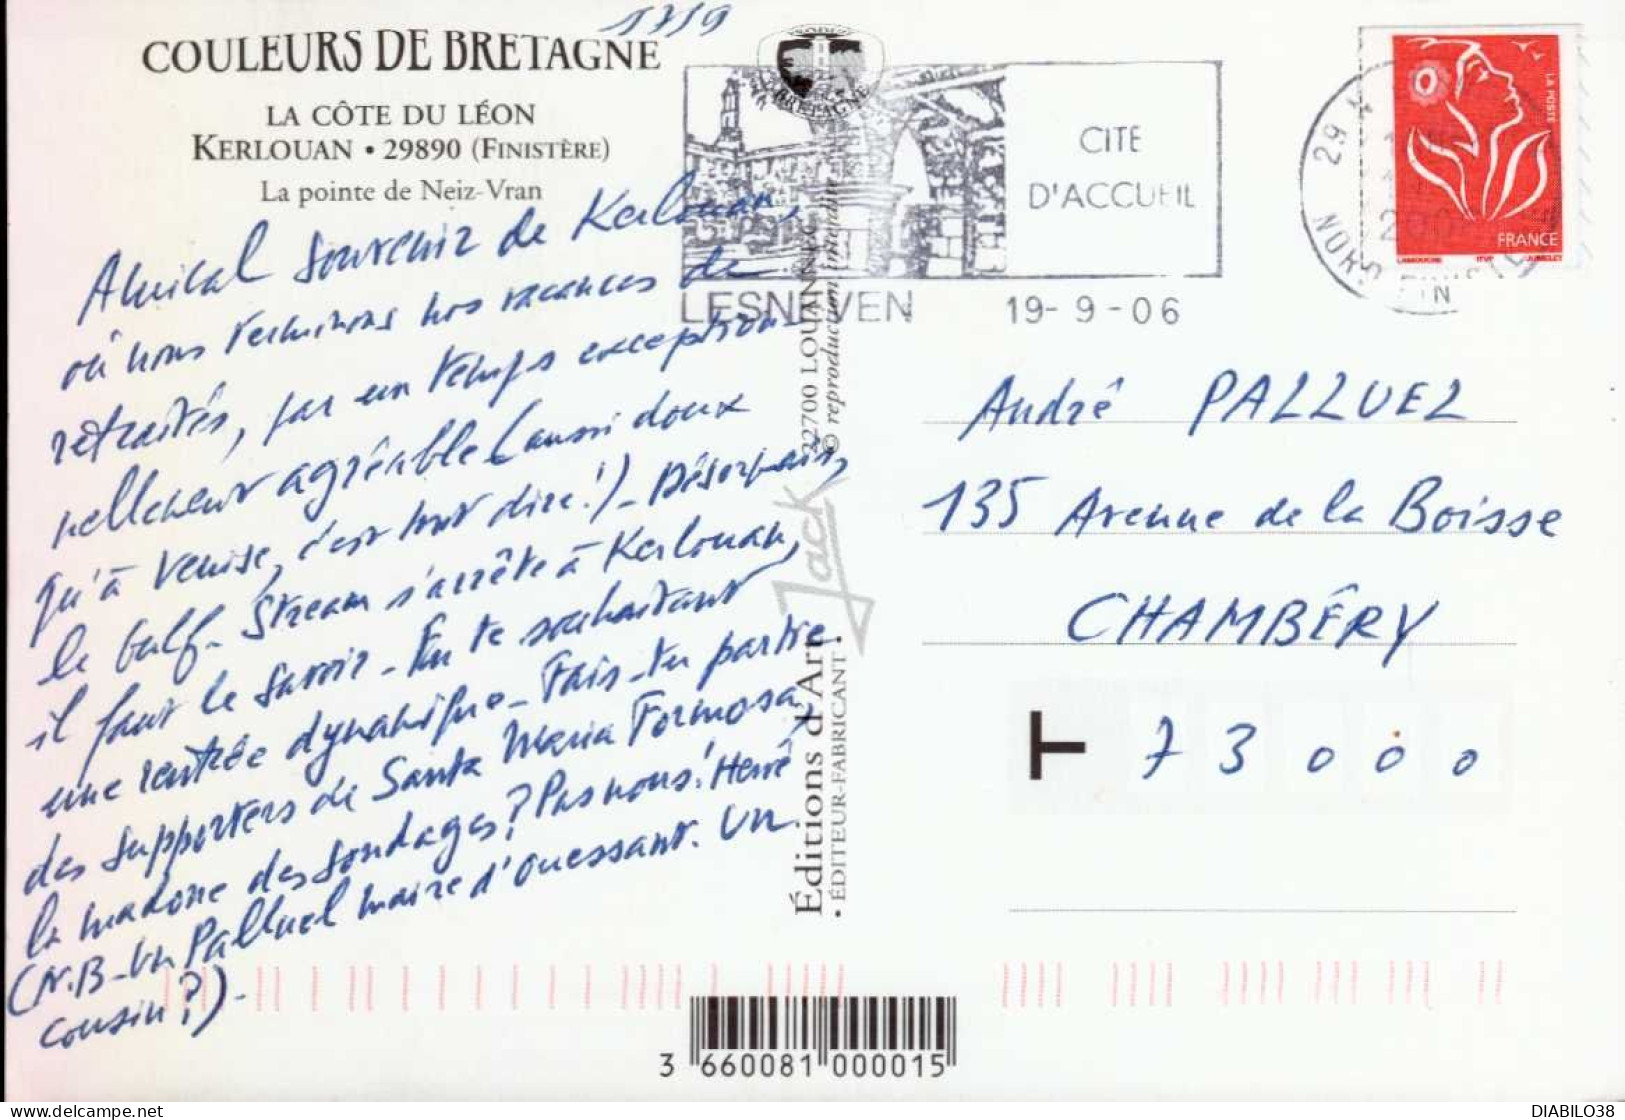 17/9
COULEURS DE BRETAGNE
LA CÔTE DU LÉON
KERLOUAN • 29890 (FINISTÈRE)
La pointe de Neiz-Vran
Amical souvenir de Kerlouan,
où nous terminons nos vacances de
retraités, par un temps exception-
nellement agréable (aussi doux
qu'à Venise, c'est tout dire!) - Désormais,
le Gulf-Stream s'arrête à Kerlouan,
il faut le savoir - En te souhaitant
une rentrée dynamique - Fais-tu partie
des supporters de Santa Maria Formosa,
la madone des sondages? Pas nous! Hervé
(N.B - Un Palluel maire d'Ouessant. Un
cousin?) -
PRODUIT
BRETAGNE
CITE
D'ACCUEIL
LESNEVEN 19-9-06
29
NORD FINISTERE
LA POSTE
FRANCE
LAMOUCHE ITVF JUMELET
André PALLUEL
135 Avenue de la Boisse
CHAMBÉRY
T 73000
22700 LOUANNEC
© reproduction interdite
Jack
Éditions d'Art
• ÉDITEUR-FABRICANT •
3 660081 000015
DIABILO38